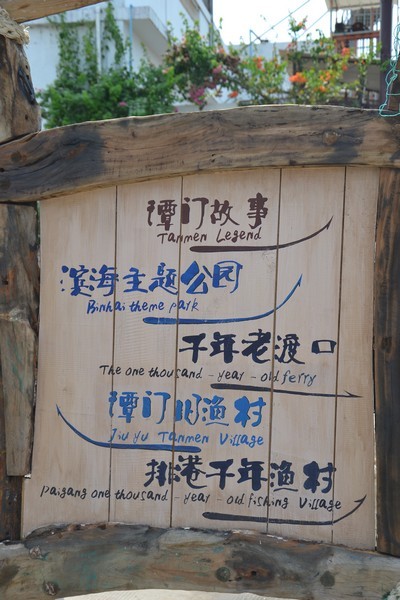 潭门故事
Tanmen Legend
滨海主题公园
Binhai theme park
千年老渡口
The one thousand - year - old ferry
潭门旧渔村
Jiu yu Tanmen Village
排港千年渔村
paigang one thousand - year - old fishing Village